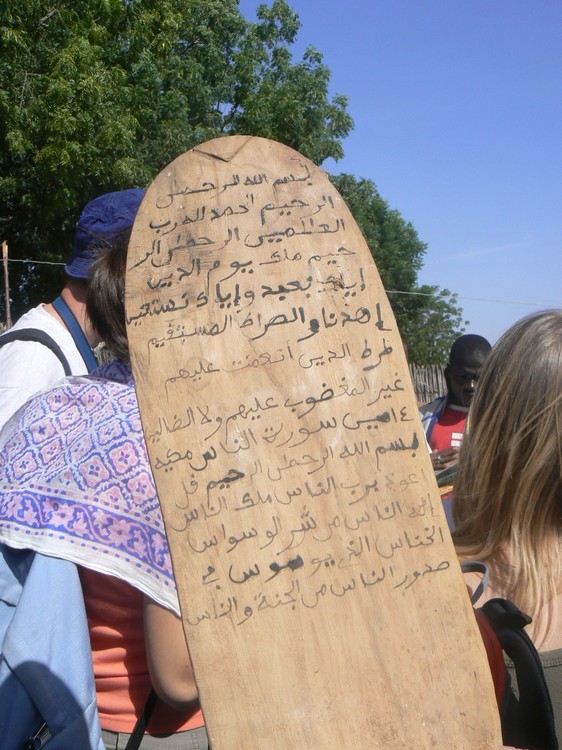 بسم الله الرحمن
الرحيم الحمد لله رب
العالمين الرحمن الر
حيم ملك يوم الدين
إياك نعبد وإياك نستعين
إهدنا الصراط المستقيم
صرط الذين أنعمت عليهم
غير المغضوب عليهم ولا الضالين
ءامين سورة الناس مكية
بسم الله الرحمن الرحيم قل
أعوذ برب الناس ملك الناس
إله الناس من شر الوسواس
الخناس الذي يوسوس في
صدور الناس من الجنة والناس